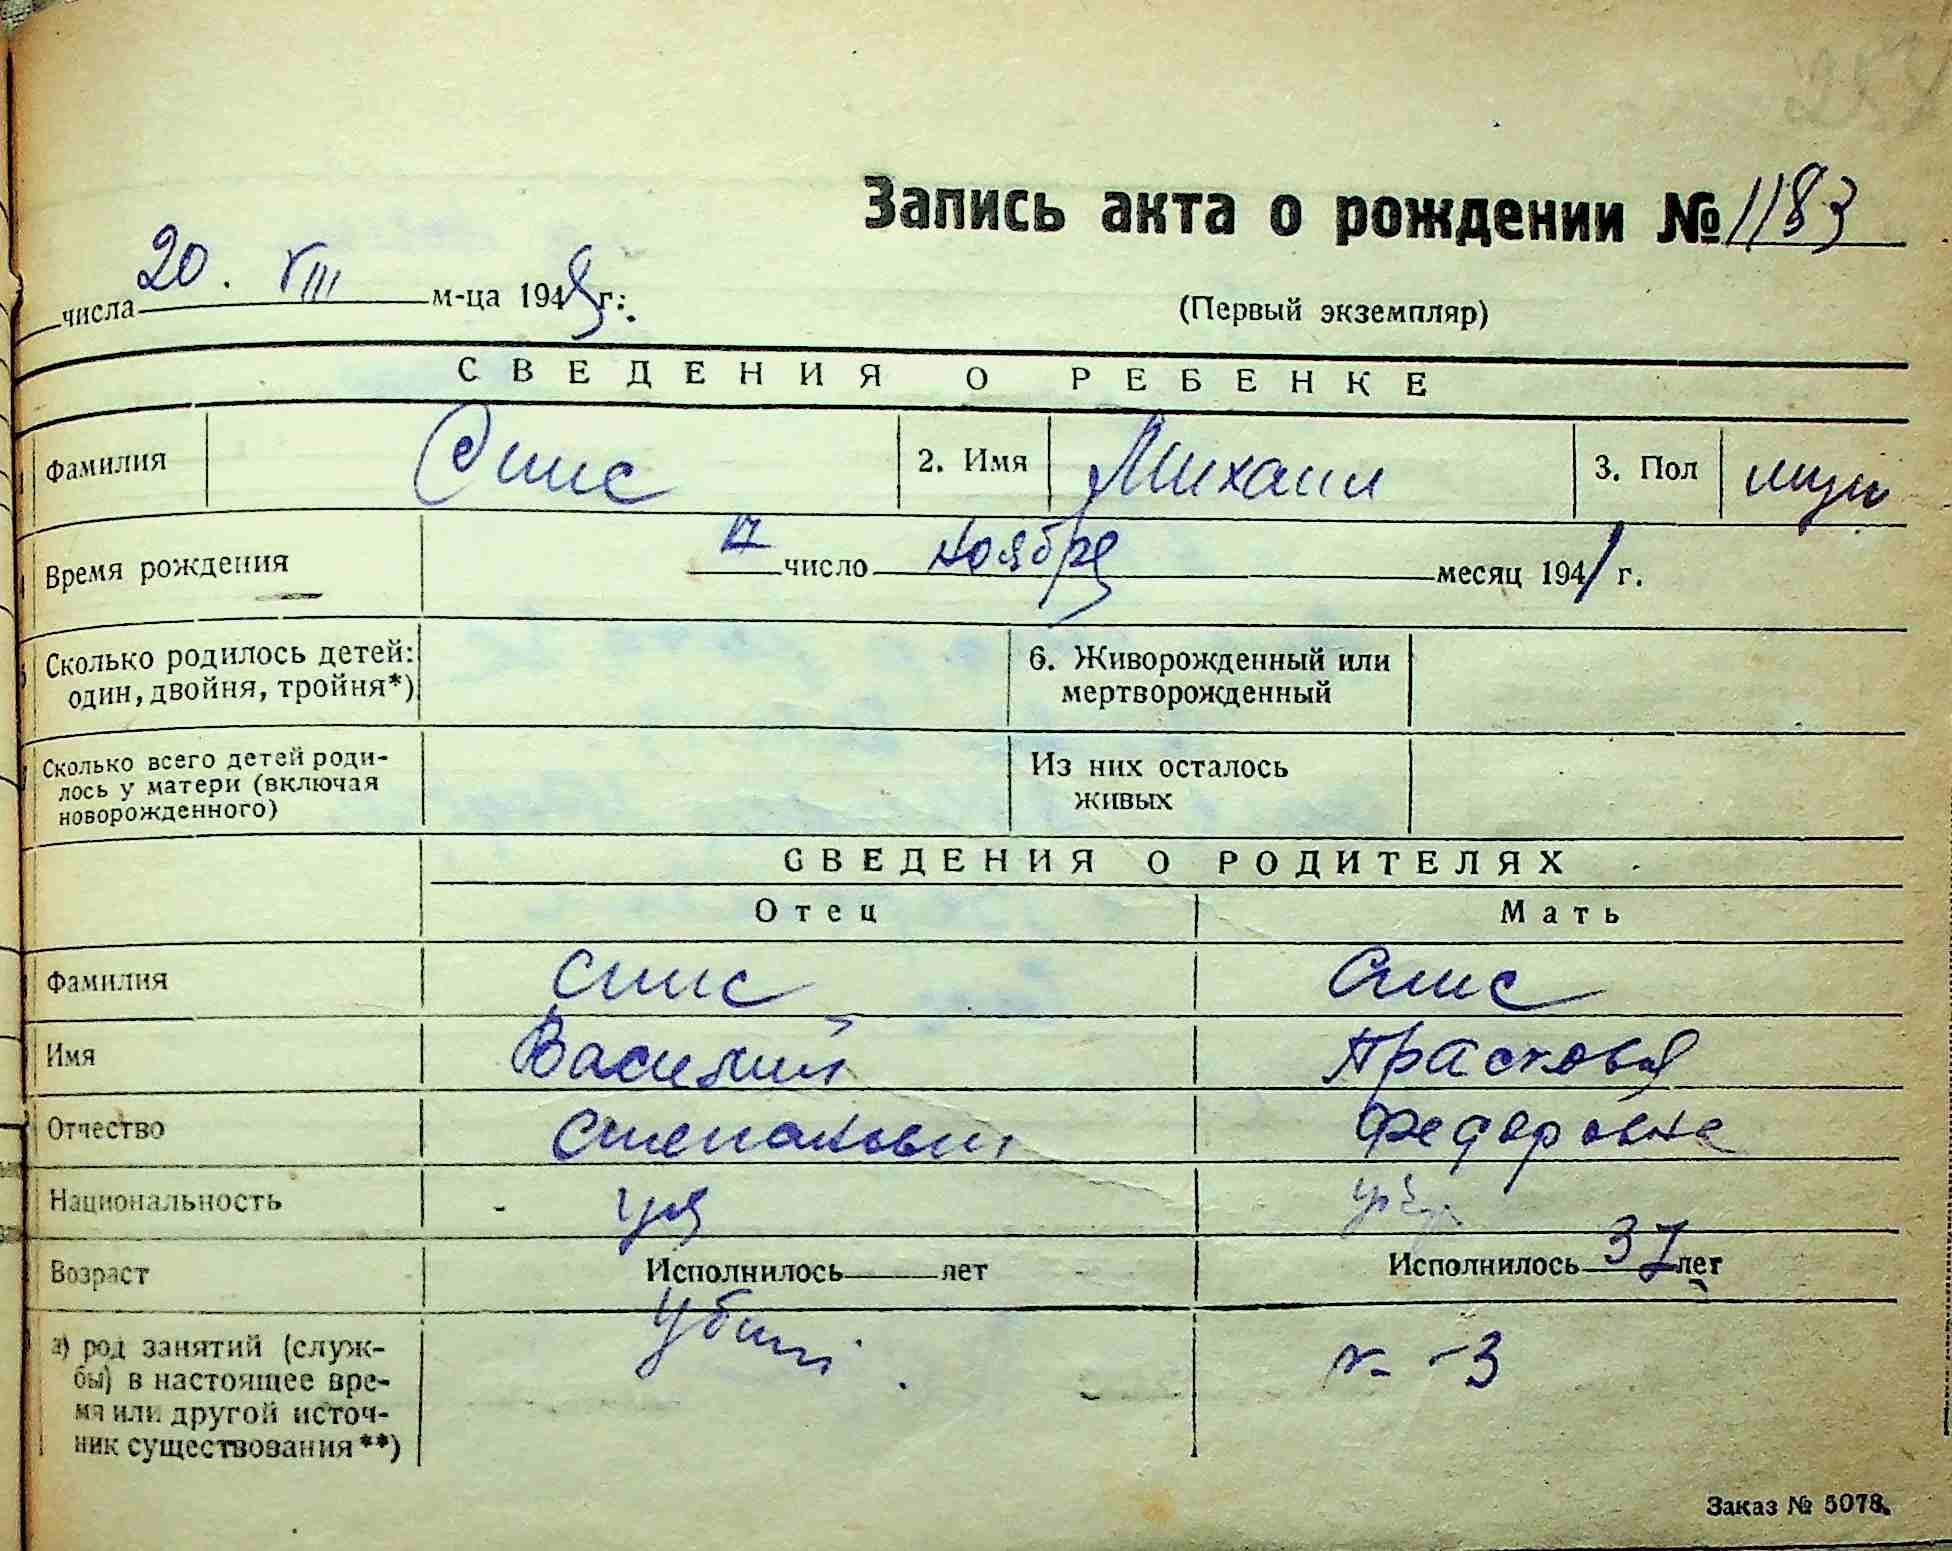 Запись акта о рождении № 1183
числа 20. VIII м-ца 194 г.
(Первый экземпляр)
СВЕДЕНИЯ О РЕБЕНКЕ
Фамилия Спис 2. Имя Михаил 3. Пол муж
Время рождения 17 число ноября месяц 1941 г.
Сколько родилось детей: один, двойня, тройня*) 6. Живорожденный или мертворожденный
Сколько всего детей родилось у матери (включая новорожденного) Из них осталось живых
СВЕДЕНИЯ О РОДИТЕЛЯХ
Отец Мать
Фамилия Спис Спис
Имя Василий Прасковья
Отчество Степанович Федоровна
Национальность
Возраст Исполнилось лет Исполнилось 37 лет
а) род занятий (службы) в настоящее время или другой источник существования**) Убит.
Заказ № 5078.